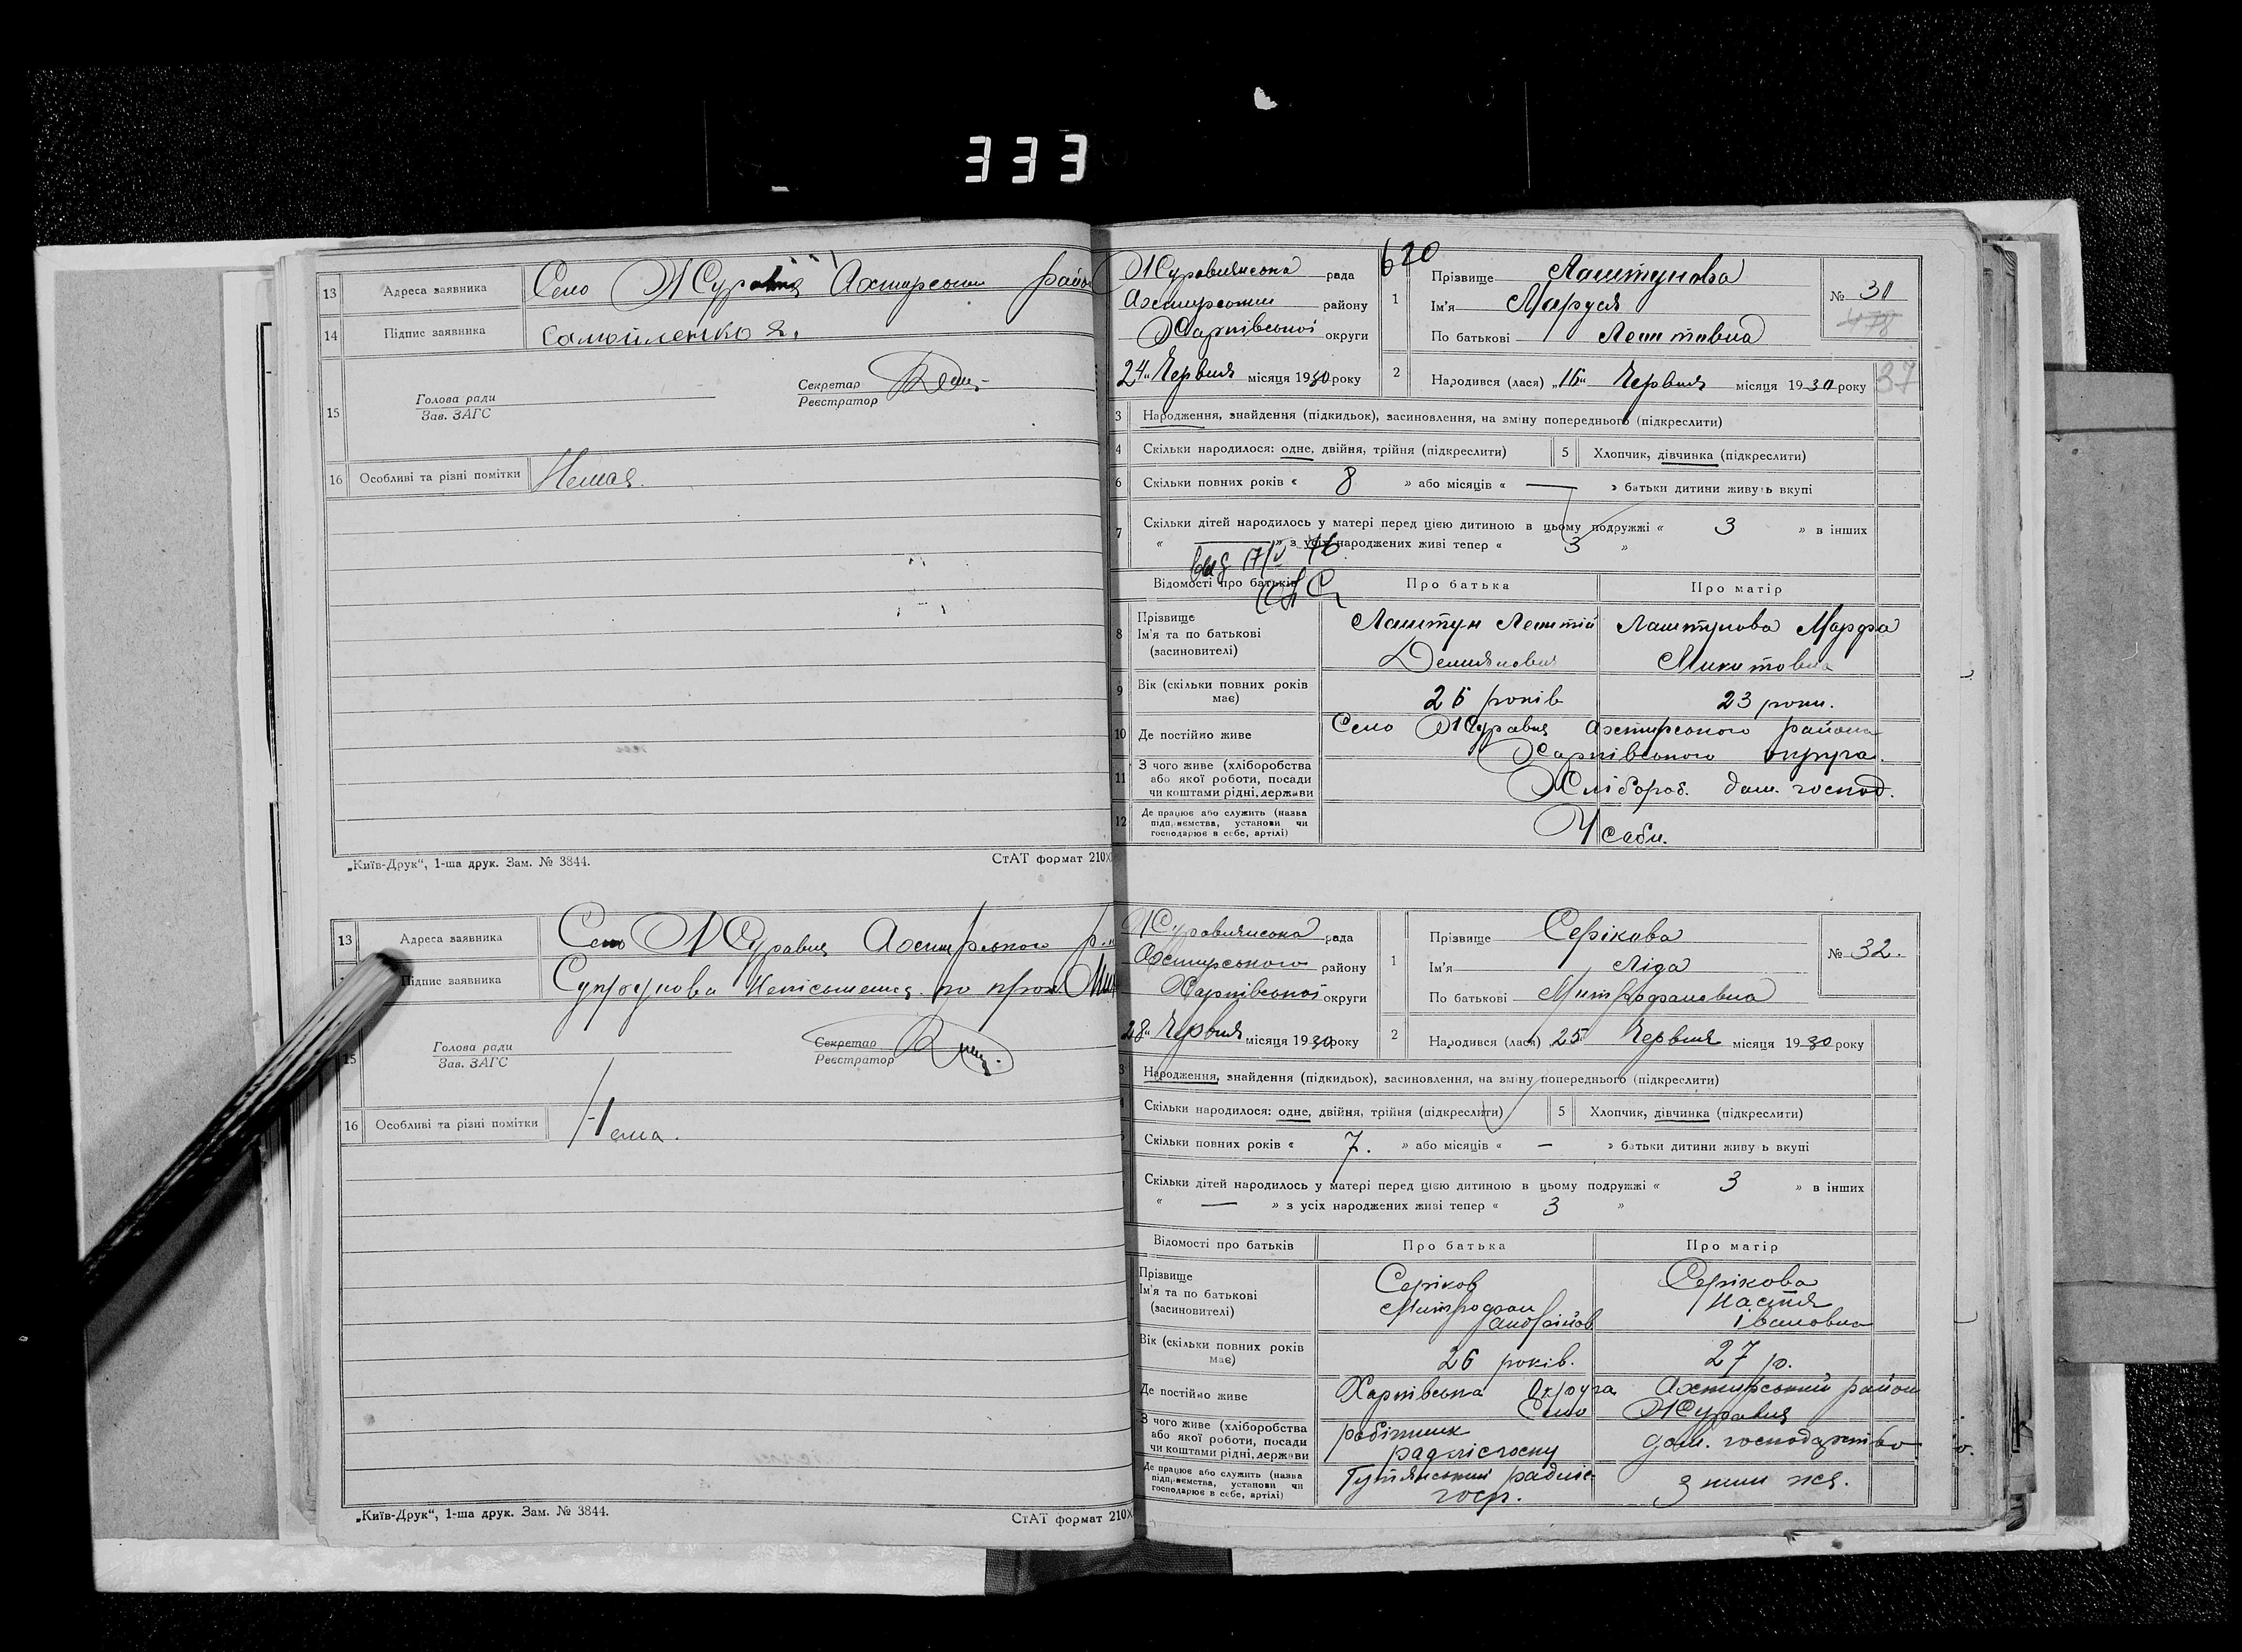 333
13 Адреса заявника Село Журавня Ахтирськи район
14 Підпис заявника Самойленко
15 Голова ради
Зав. ЗАГС
Секретар
Реєстратор
16 Особливі та різні помітки Немая.
„Київ-Друк“, 1-ша друк. Зам. № 3844. СтАТ формат 210X
13 Адреса заявника Село Журавня Ахтирського р.
Підпис заявника Супрунова Неписьменна по прох.
15 Голова ради
Зав. ЗАГС
Секретар
Реєстратор
16 Особливі та різні помітки Нема.
„Київ-Друк“, 1-ша друк. Зам. № 3844. СтАТ формат 210X
620
Журавнянська рада
Ахтирський району
Харківської округи
24" Червня місяця 1930 року
1 Прізвище Лаштунова
Ім'я Маруся
По батькові
№ 31
478
2 Народився (лася) „16" Червня місяця 1930 року
37
3 Народження, знайдення (підкидьок), засиновлення, на зміну попереднього (підкреслити)
4 Скільки народилося: одне, двійня, трійня (підкреслити) 5 Хлопчик, дівчинка (підкреслити)
6 Скільки повних років « 8 » або місяців « — » батьки дитини живуть вкупі
7 Скільки дітей народилось у матері перед цією дитиною в цьому подружжі « 3 » в інших
« — » з усіх народжених живі тепер « 3 »
Відомості про батьків Про батька Про матір
8 Прізвище
Ім'я та по батькові
(засновителі)
Лаштун
Демянович
Лаштунова Марфа
Микитовна
9 Вік (скільки повних років
має)
26 років 23 роки.
10 Де постійно живе Село Журавня Ахтирського района
Харківського округа.
11 З чого живе (хліборобства
або якої роботи, посади
чи коштами рідні, держави
Хлібороб. дом. господ.
12 Де працює або служить (назва
підприємства, установи чи
господарює в себе, артілі)
У себи.
Журавнянська рада
Ахтирського району
Харківської округи
28" Червня місяця 1930 року
1 Прізвище Серікова
Ім'я Ліда
По батькові Митрофановна
№ 32.
2 Народився (лася) „25" Червня місяця 1930 року
3 Народження, знайдення (підкидьок), засиновлення, на зміну попереднього (підкреслити)
Скільки народилося: одне, двійня, трійня (підкреслити) 5 Хлопчик, дівчинка (підкреслити)
Скільки повних років « 7. » або місяців « — » батьки дитини живуть вкупі
Скільки дітей народилось у матері перед цією дитиною в цьому подружжі « 3 » в інших
« — » з усіх народжених живі тепер « 3 »
Відомості про батьків Про батька Про матір
Прізвище
Ім'я та по батькові
(засиновителі)
Серіков
Митрофан
Андрійов
Серікова
Настя
Івановна
Вік (скільки повних років
має)
26 років. 27 р.
Де постійно живе Харківська Округа Ахтирський район
Село Журавня
З чого живе (хліборобства
або якої роботи, посади
чи коштами рідні, держави
робітник
радлісгоспу
дом. господарство
Де працює або служить (назва
підприємства, установи чи
господарює в себе, артілі)
Гутянський радліс
госп.
з ним же.